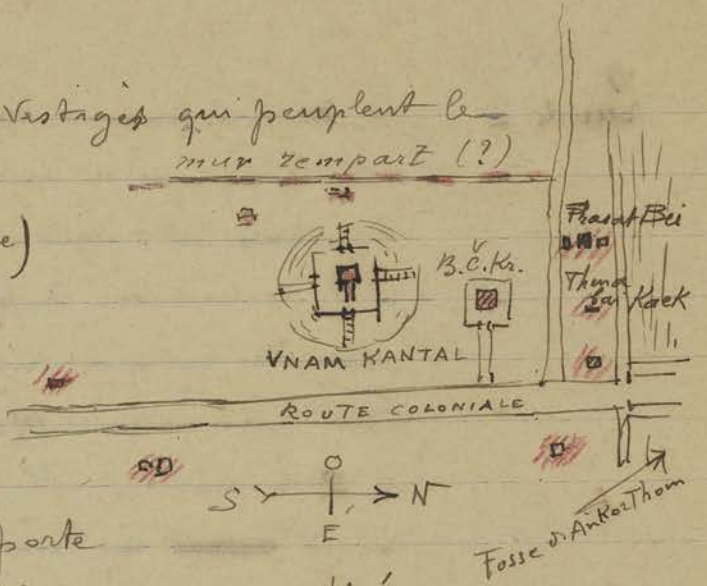 Vestiges qui peuplent le
mur rempart (?)
e)
Prasat Bei
B.Č.Kr.
Thma
Kaek
VNAM KANTAL
ROUTE COLONIALE
O
S N
E
Fosse d'AnkorThom
porte